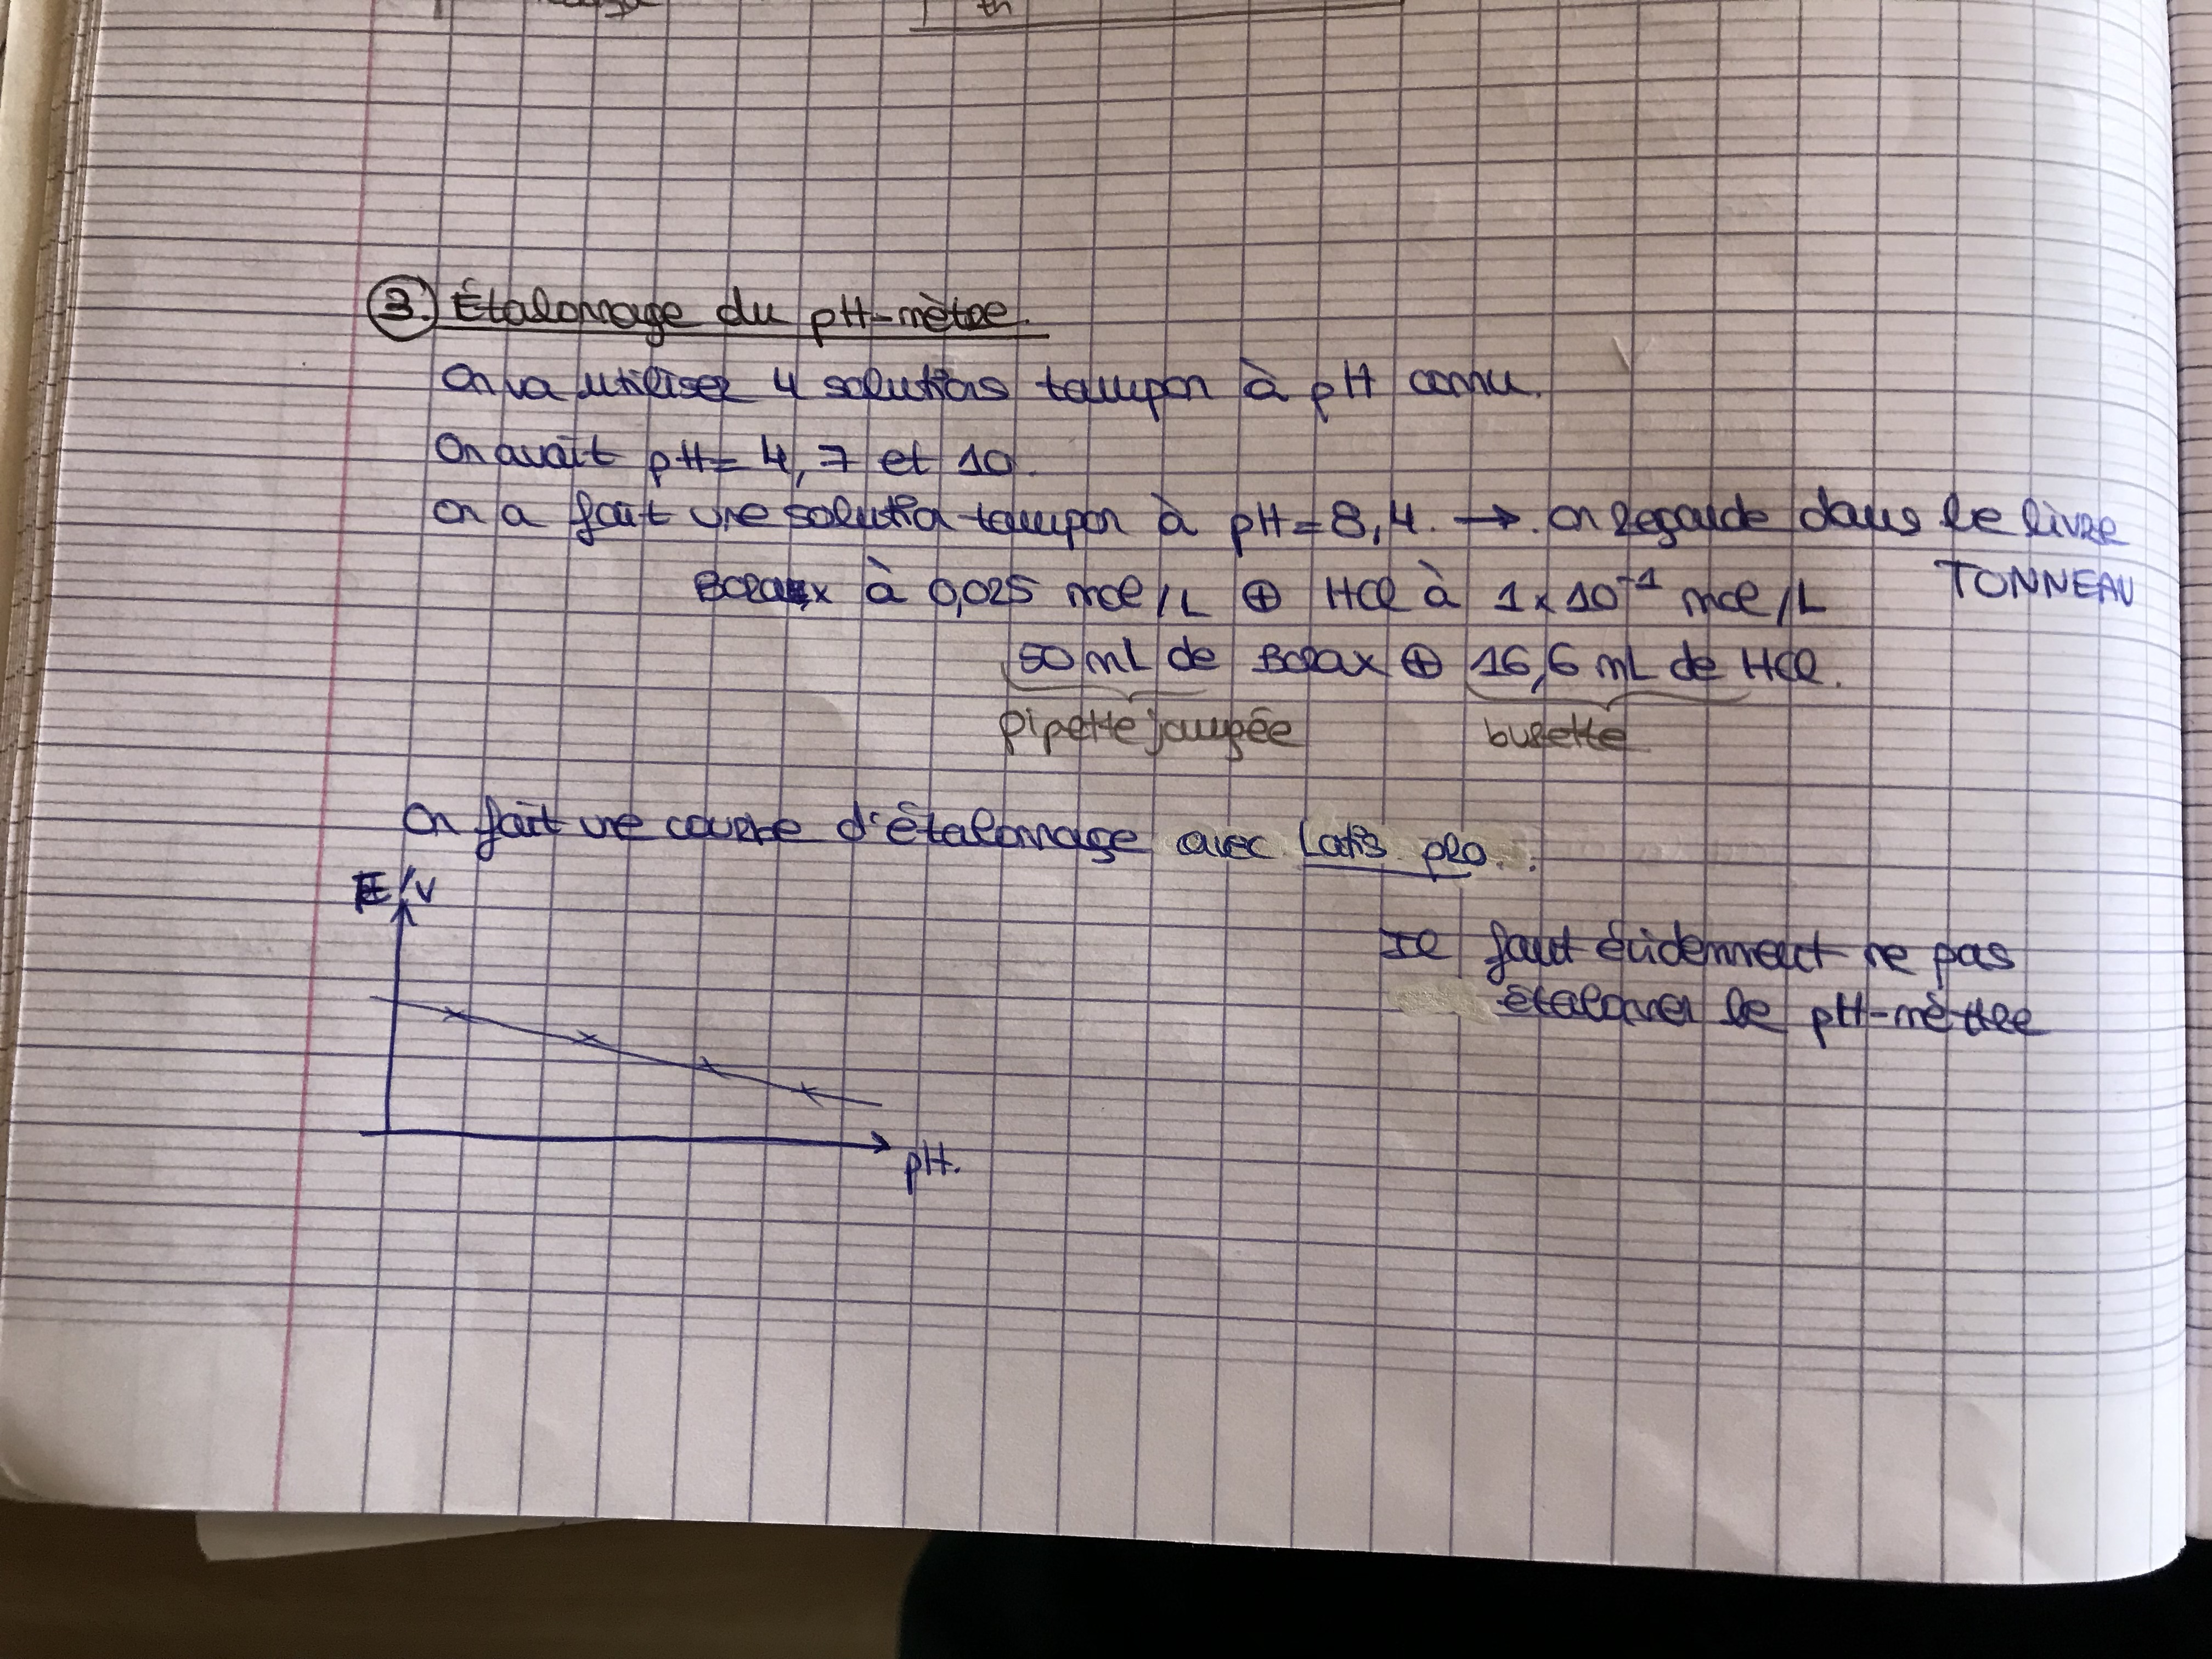 3. Étalonnage du pH-mètre
On va utiliser 4 solutions tampon à pH connu.
On avait pH = 4, 7 et 10.
On a fait une solution tampon à pH = 8,4. → on regarde dans le livre
TONNEAU
Borax à 0,025 mol/L ⊕ HCl à 1 x 10⁻¹ mol/L
50 mL de Borax ⊕ 16,6 mL de HCl.
pipette jaugée
burette
On fait une courbe d'étalonnage avec Latis pro.
E/V
Il faut évidemment ne pas
étalonner le pH-mètre
pH.